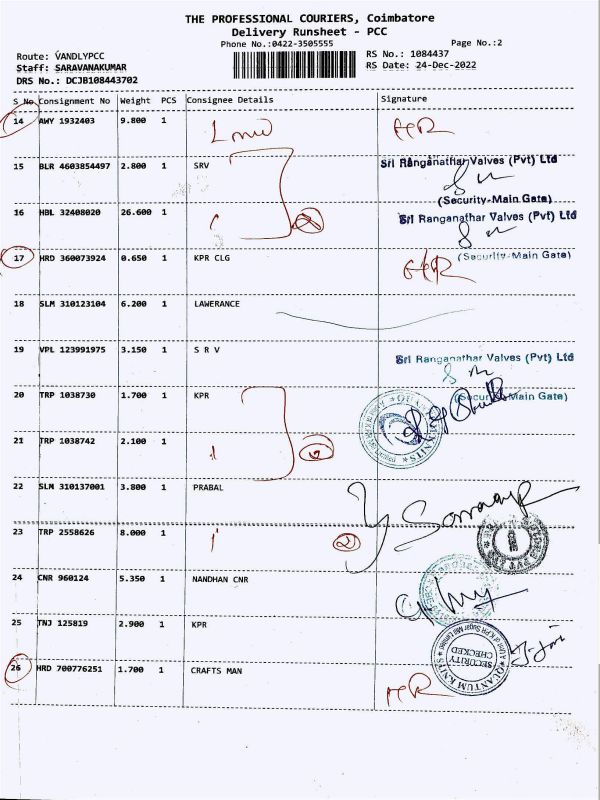 THE PROFESSIONAL COURIERS, Coimbatore
Delivery Runsheet - PCC
Phone No.:0422-3505555
Page No.:2
Route: VANDLYPCC
RS No.: 1084437
Staff: SARAVANAKUMAR
RS Date: 24-Dec-2022
DRS No.: DCJB108443702
S No Consignment No Weight PCS Consignee Details Signature
14 AWY 1932403 9.800 1
15 BLR 4603854497 2.800 1 SRV Sri Ranganathar Valves (Pvt) Ltd
(Security-Main Gate)
16 HBL 32408020 26.600 1 Sri Ranganathar Valves (Pvt) Ltd
(Security-Main Gate)
17 HRD 360073924 0.650 1 KPR CLG
18 SLM 310123104 6.200 1 LAWERANCE
19 VPL 123991975 3.150 1 S R V Sri Ranganathar Valves (Pvt) Ltd
(Security-Main Gate)
20 TRP 1038730 1.700 1 KPR
21 TRP 1038742 2.100 1
22 SLM 310137001 3.800 1 PRABAL
23 TRP 2558626 8.000 1
24 CNR 960124 5.350 1 NANDHAN CNR
25 TNJ 125819 2.900 1 KPR
QUANTUM KNITS
SECURITY
CHECKED
26 HRD 700776251 1.700 1 CRAFTS MAN